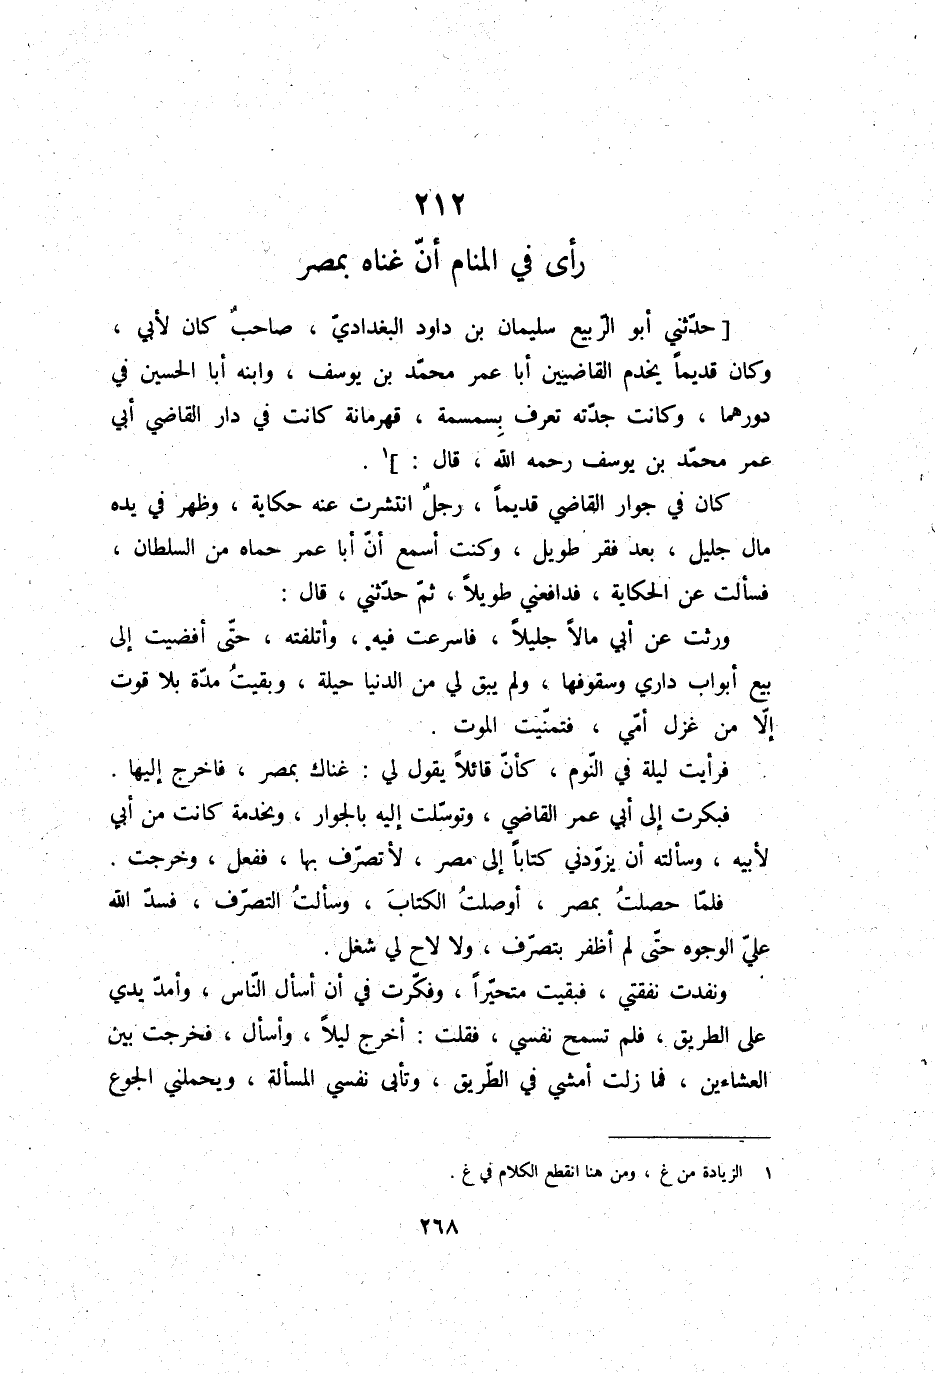 ٢١٢
رأى في المنام أنّ غناه بمصر
[ حدّثني أبو الرّبيع سليمان بن داود البغداديّ ، صاحبٌ كان لأبي ،
وكان قديماً يخدم القاضيين أبا عمر محمّد بن يوسف ، وابنه أبا الحسين في
دورهما ، وكانت جدّته تعرف بِسمسمة ، قهرمانة كانت في دار القاضي أبي
عمر محمّد بن يوسف رحمه الله ، قال : ]١ .
كان في جوار القاضي قديماً ، رجلٌ انتشرت عنه حكاية ، وظهر في يده
مال جليل ، بعد فقر طويل ، وكنت أسمع أنّ أبا عمر حماه من السلطان ،
فسألت عن الحكاية ، فدافعني طويلاً ، ثمّ حدّثني ، قال :
ورثت عن أبي مالاً جليلاً ، فاسرعت فيه ، وأتلفته ، حتّى أفضيت إلى
بيع أبواب داري وسقوفها ، ولم يبق لي من الدنيا حيلة ، وبقيتُ مدّة بلا قوت
إلّا من غزل أمّي ، فتمنّيت الموت .
فرأيت ليلة في النّوم ، كأنّ قائلاً يقول لي : غناك بمصر ، فاخرج إليها .
فبكرت إلى أبي عمر القاضي ، وتوسّلت إليه بالجوار ، وبخدمة كانت من أبي
لأبيه ، وسألته أن يزوّدني كتاباً إلى مصر ، لأتصرّف بها ، ففعل ، وخرجت .
فلمّا حصلتُ بمصر ، أوصلتُ الكتابَ ، وسألتُ التصرّف ، فسدّ الله
عليّ الوجوه حتّى لم أظفر بتصرّف ، ولا لاح لي شغل .
ونفدت نفقتي ، فبقيت متحيّراً ، وفكّرت في أن أسأل النّاس ، وأمدّ يدي
على الطريق ، فلم تسمح نفسي ، فقلت : أخرج ليلاً ، وأسأل ، فخرجت بين
العشاءين ، فما زلت أمشي في الطّريق ، وتأبى نفسي المسألة ، ويحملني الجوع
١ الزيادة من غ ، ومن هنا انقطع الكلام في غ .
٢٦٨